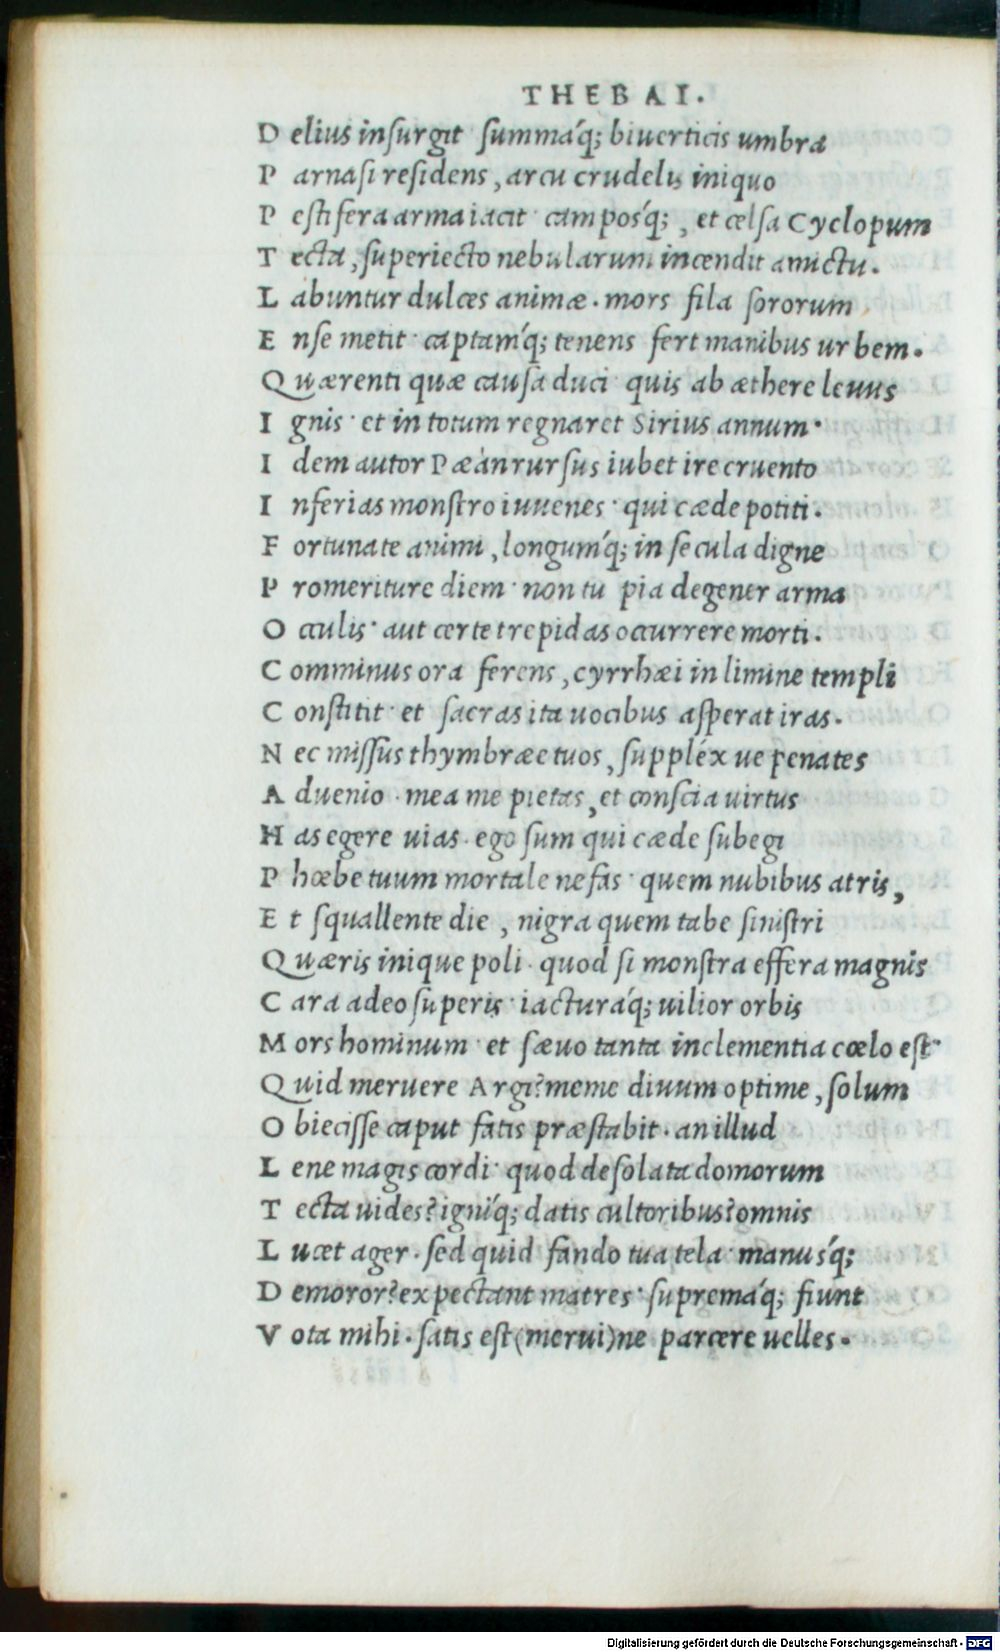 THEBAI.
D elius insurgit summáq; biuerticis umbra
P arnasi residens, arcu crudelis iniquo
P estifera arma iacit· camposq́;, et celsa Cyclopum
T ecta, superiecto nebularum incendit amictu.
L abuntur dulces animæ. mors fila sororum
E nse metit· captamq́; tenens fert manibus urbem.
Quærenti quæ causa duci· quis ab æthere leuus
I gnis· et in totum regnaret Sirius annum·
I dem autor Pæan rursus iubet ire cruento
I nferias monstro iuuenes· qui cæde potiti.
F ortunate animi, longumq́; in secula digne
P romeriture diem· non tu pia degener arma
O cculis· aut certe trepidas occurrere morti.
C omminus ora ferens, cyrrhæi in limine templi
C onstitit· et sacras ita uocibus asperat iras.
N ec missus thymbræe tuos, suppléx ue penates
A duenio· mea me pietas, et conscia uirtus
H as egere uias· ego sum qui cæde subegi
P hœbe tuum mortale nefas· quem nubibus atris,
E t squallente die, nigra quem tabe sinistri
Quæris inique poli· quod si monstra effera magnis
C ara adeo superis· iacturáq; uilior orbis
M ors hominum· et sæuo tanta inclementia cœlo est·
Quid meruere Argi? meme diuum optime, solum
O biecisse caput fatis præstabit· an illud
L ene magis cordi· quod desolata domorum
T ecta uides? igniq́; datis cultoribus? omnis
L ucet ager· sed quid fando tua tela· manusq́;
D emoror? expectant matres· supremáq; fiunt
V ota mihi· satis est (merui) ne parcere uelles.
Digitalisierung gefördert durch die Deutsche Forschungsgemeinschaft - DFG